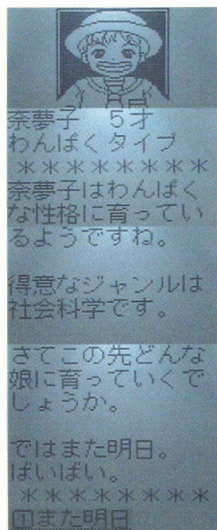 奈夢子　５才
わんぱくタイプ
＊＊＊＊＊＊＊＊
奈夢子はわんぱく
な性格に育ってい
るようですね。
得意なジャンルは
社会科学です。
さてこの先どんな
娘に育っていくで
しょうか。
ではまた明日。
ばいばい。
＊＊＊＊＊＊＊＊
①また明日